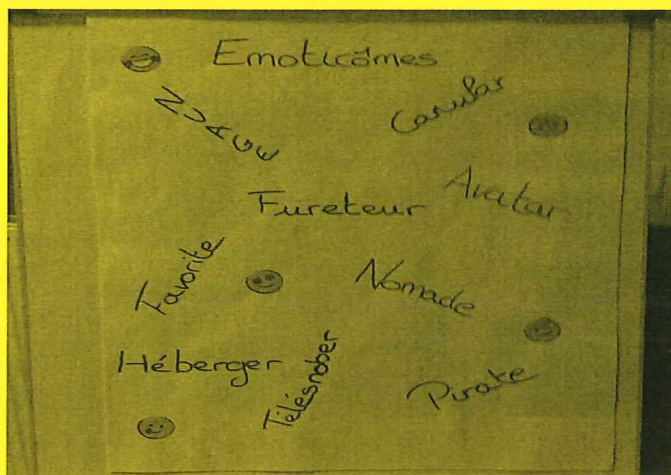 Emoticômes
NUAGE
Canular
Avatar
Fureteur
Favorite
Nomade
Héberger
Télésnober
Pirate